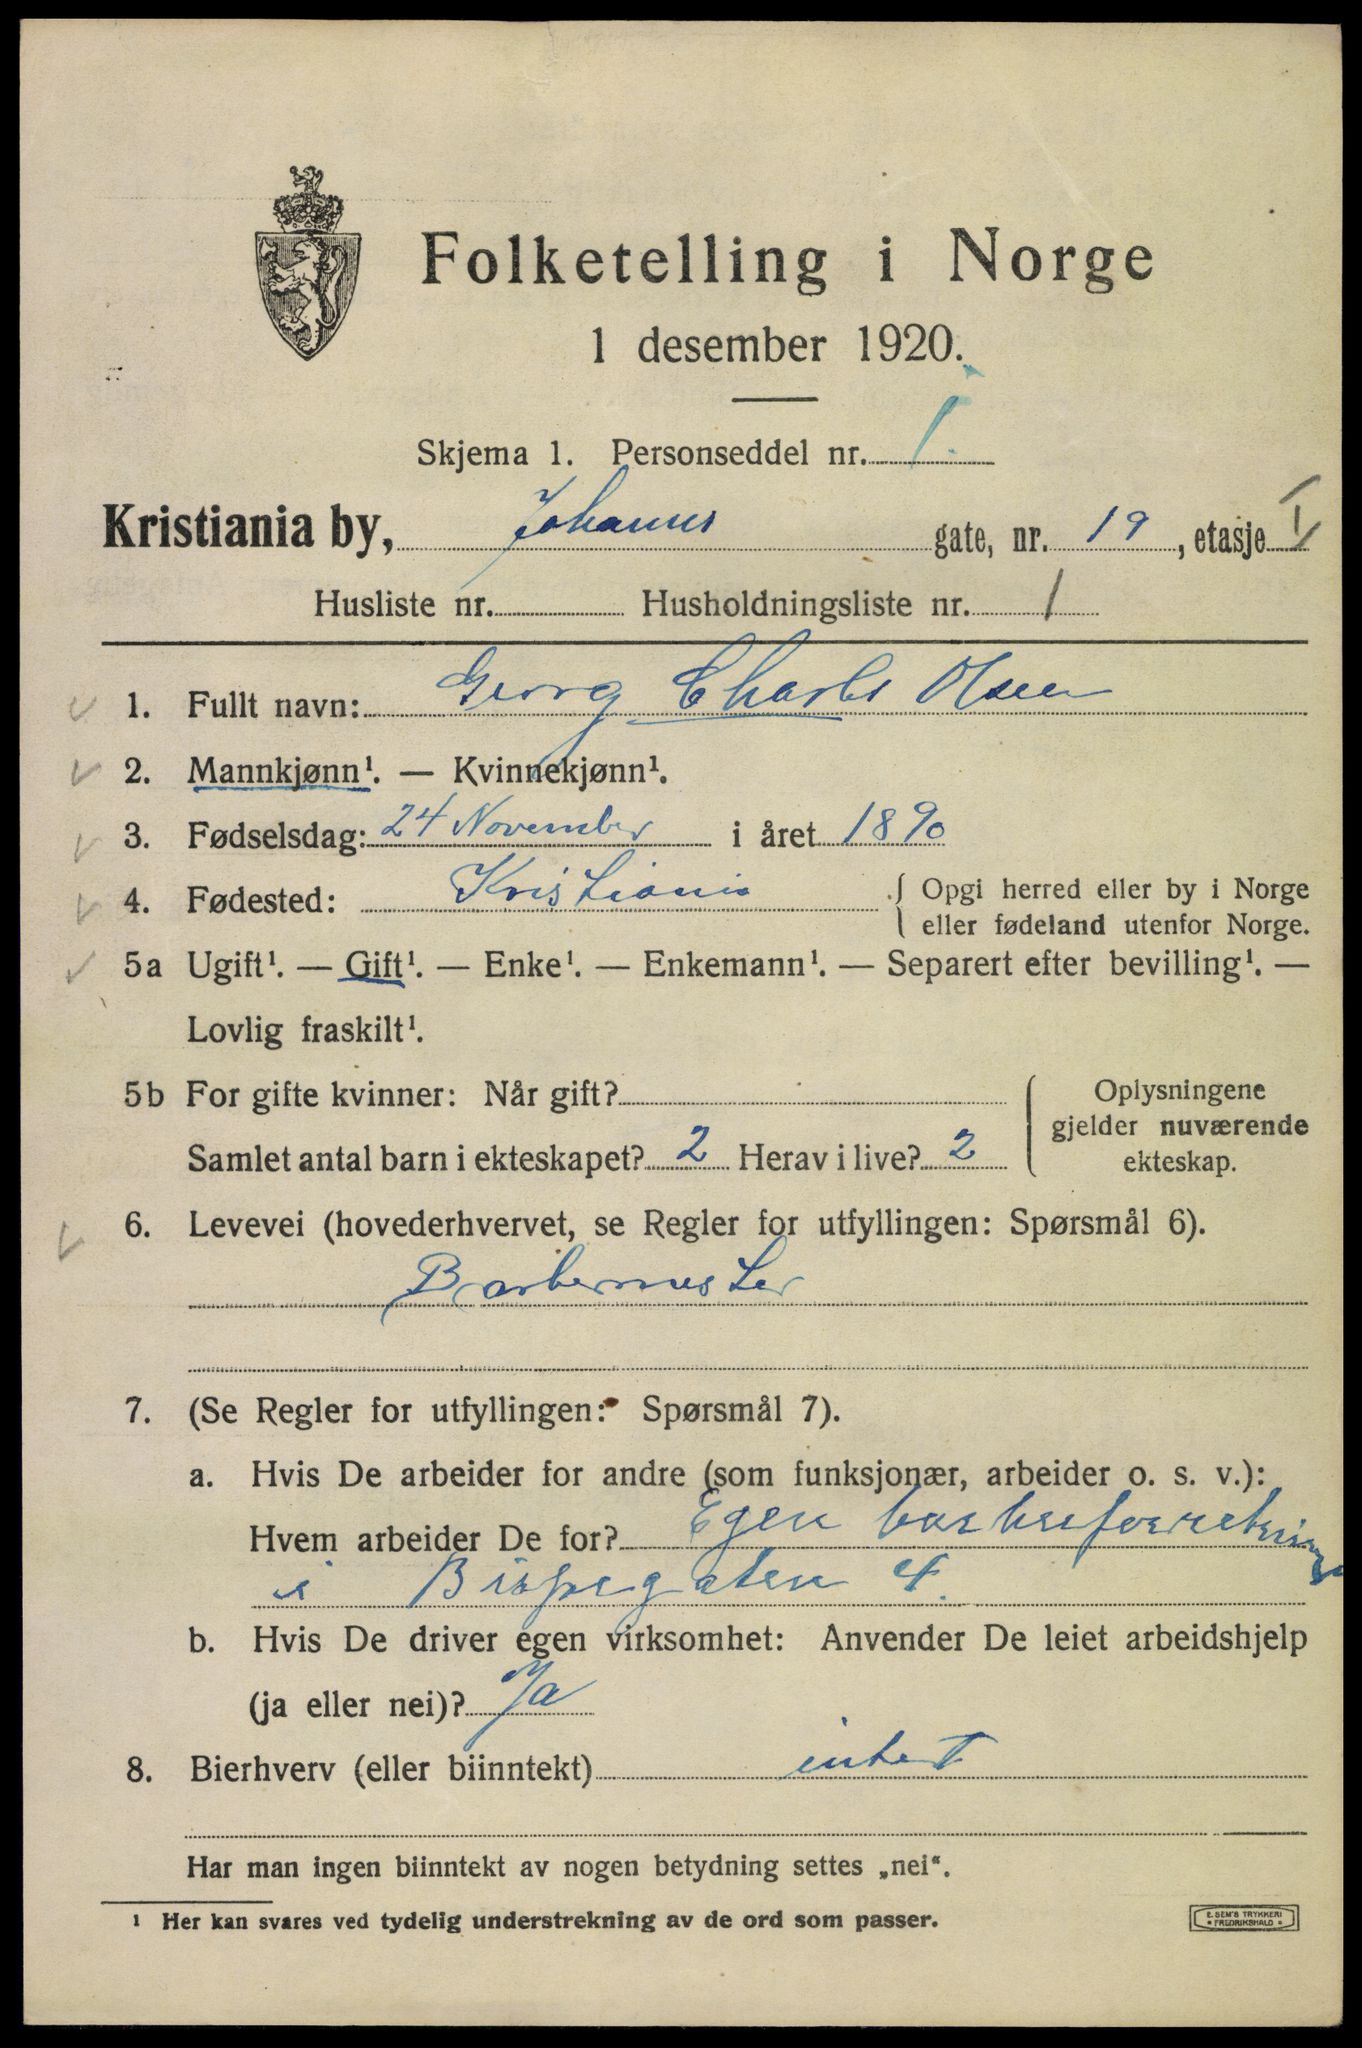 Folketelling i Norge
1 desember 1920.
Skjema 1. Personseddel nr. 1.
Kristiania by, Johannes gate, nr. 19, etasje I
Husliste nr. Husholdningsliste nr. 1
1. Fullt navn: Georg Charls Olsen
2. Mannkjønn¹. — Kvinnekjønn¹.
3. Fødselsdag: 24 November i året 1890
4. Fødested: Kristiania { Opgi herred eller by i Norge
eller fødeland utenfor Norge.
5a Ugift¹. — Gift¹. — Enke¹. — Enkemann¹. — Separert efter bevilling¹. —
Lovlig fraskilt¹.
5b For gifte kvinner: Når gift? { Oplysningene
gjelder nuværende
Samlet antal barn i ekteskapet? 2 Herav i live? 2 ekteskap.
6. Levevei (hovederhvervet, se Regler for utfyllingen: Spørsmål 6).
Barbermester
7. (Se Regler for utfyllingen: Spørsmål 7).
a. Hvis De arbeider for andre (som funksjonær, arbeider o. s. v.):
Hvem arbeider De for? Egen barberforretning
i Bispegaten 4.
b. Hvis De driver egen virksomhet: Anvender De leiet arbeidshjelp
(ja eller nei)? Ja
8. Bierhverv (eller biinntekt) intet
Har man ingen biinntekt av nogen betydning settes „nei“.
¹ Her kan svares ved tydelig understrekning av de ord som passer.
E. SEM'S TRYKKERI
FREDRIKSHALD